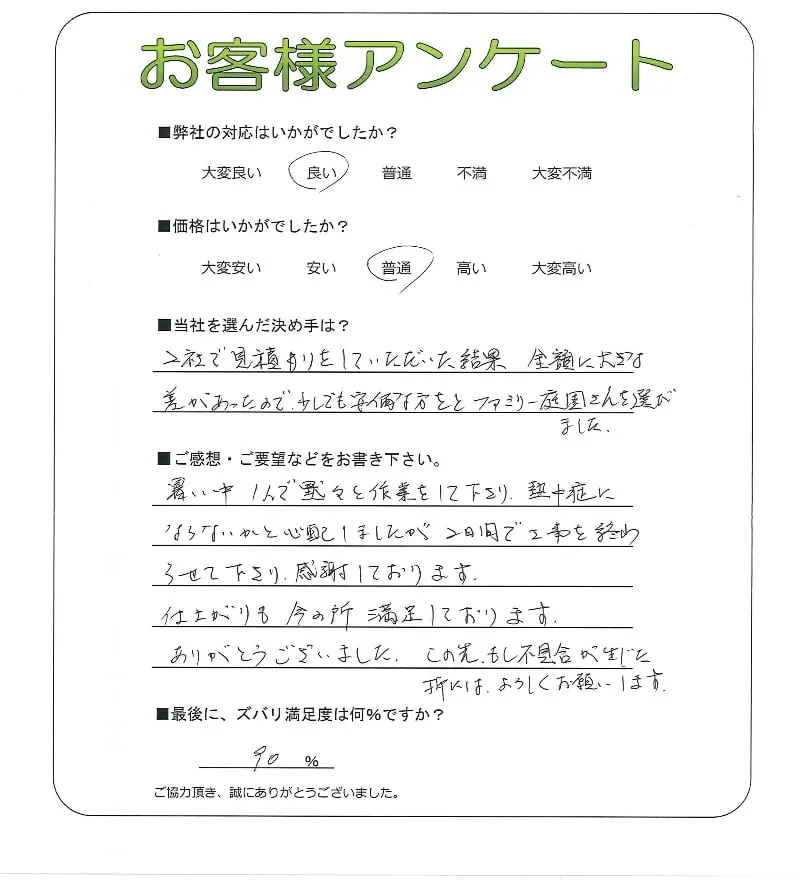 お客様アンケート
■弊社の対応はいかがでしたか？
大変良い 良い 普通 不満 大変不満
■価格はいかがでしたか？
大変安い 安い 普通 高い 大変高い
■当社を選んだ決め手は？
2社で見積もりをしていただいた結果 金額に大きな
差があったので、少しでも安価な方をと ファミリー庭園さんを選び
ました。
■ご感想・ご要望などをお書き下さい。
暑い中 1人で黙々と作業をして下さり、熱中症に
ならないかと心配しましたが 2日間で工事を終わ
らせて下さり、感謝しております。
仕上がりも 今の所 満足しております。
ありがとうございました。 この先、もし不具合が生じた
折には、よろしくお願いします。
■最後に、ズバリ満足度は何％ですか？
90 ％
ご協力頂き、誠にありがとうございました。